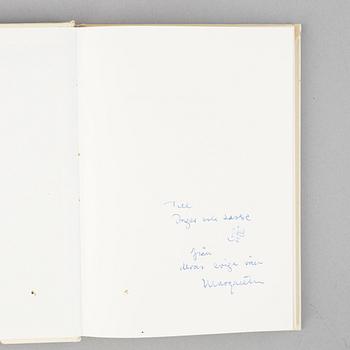 Till
Inger och Lasse
från
deras eviga vän
Margareta